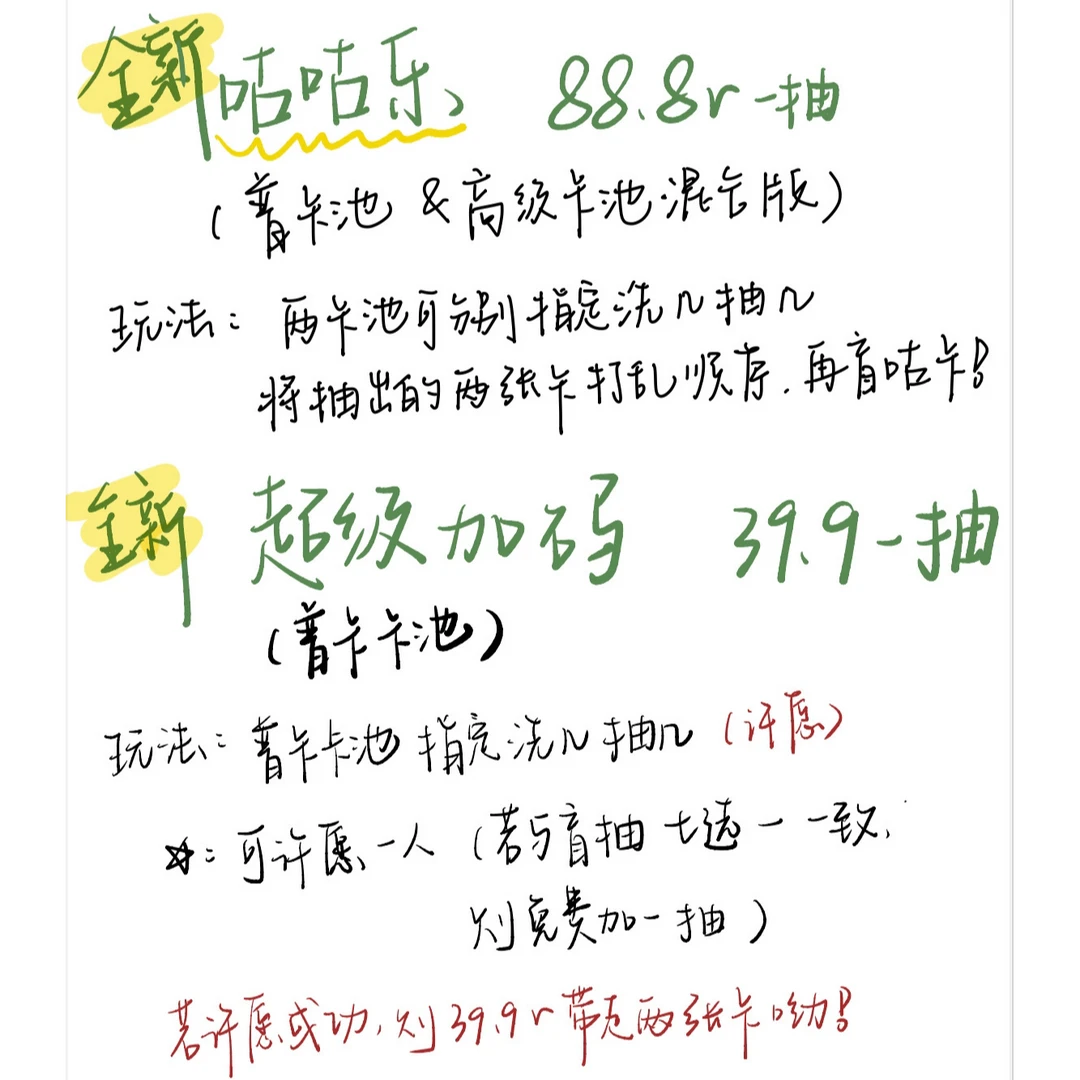 全新咕咕乐 88.8r一抽
(普卡池 & 高级卡池混合版)
玩法: 两卡池可分别指定洗n抽n
将抽出的两张卡打乱顺序.再盲咕卡!
全新 超级加码 39.9一抽
(普卡卡池)
玩法: 普卡卡池 指定洗n抽n (许愿)
☆: 可许愿一人 (若与盲抽七选一一致,
则免费加一抽)
若许愿成功,则39.9r带走两张卡呦!